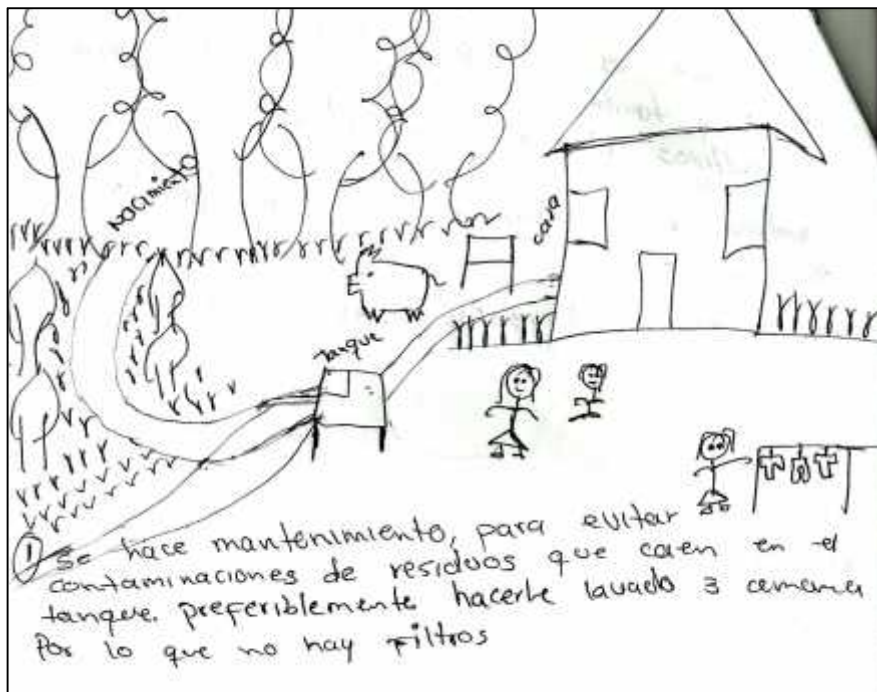 Nacimiento
casa
Tanque
① Se hace mantenimiento, para evitar
contaminaciones de residuos que caen en el
tanque. preferiblemente hacerle lavado 3 cemana
Por lo que no hay Filtros